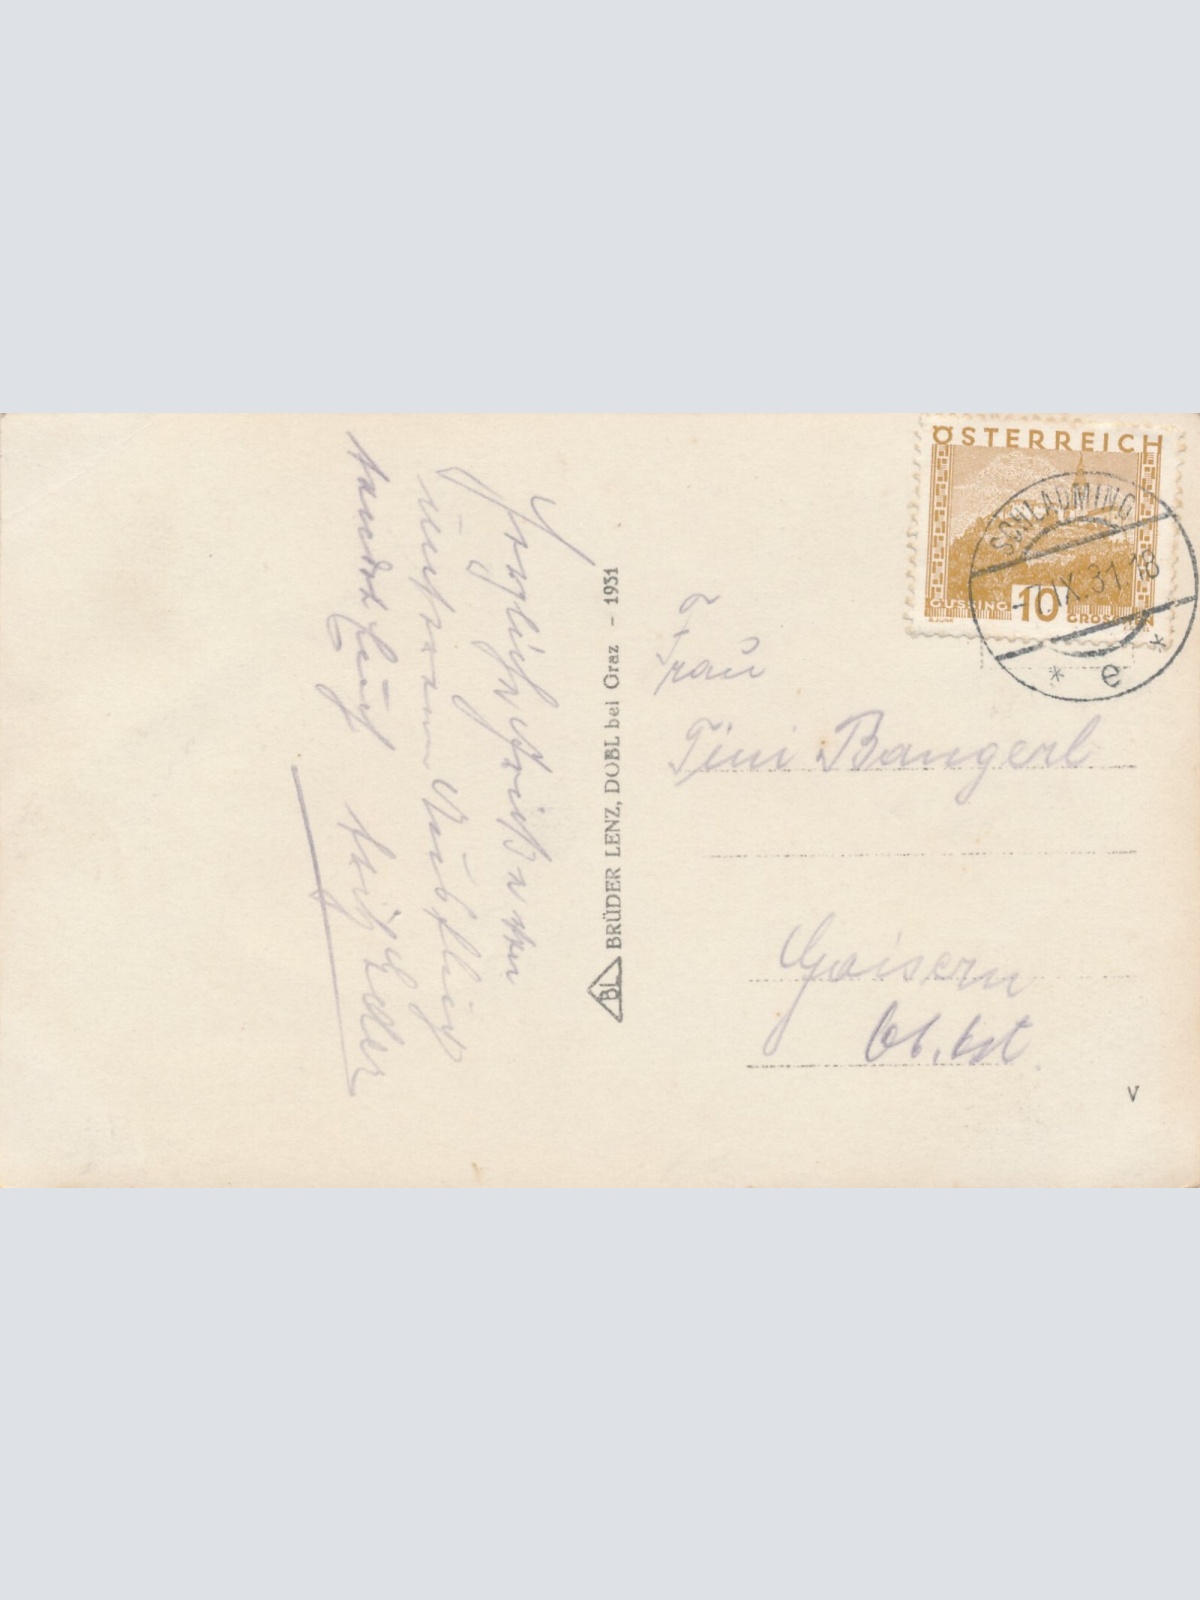 Herzliche Grüße von
unserem Ausflug
sendet Euch
Eder
BL BRÜDER LENZ, DOBL bei Graz - 1931
ÖSTERREICH
GÜSSING 10 GROSCHEN
SCHLADMING
IX. 31 18
* e *
Frau
Tini Bangerl
Goisern
Ob. Öst.
V